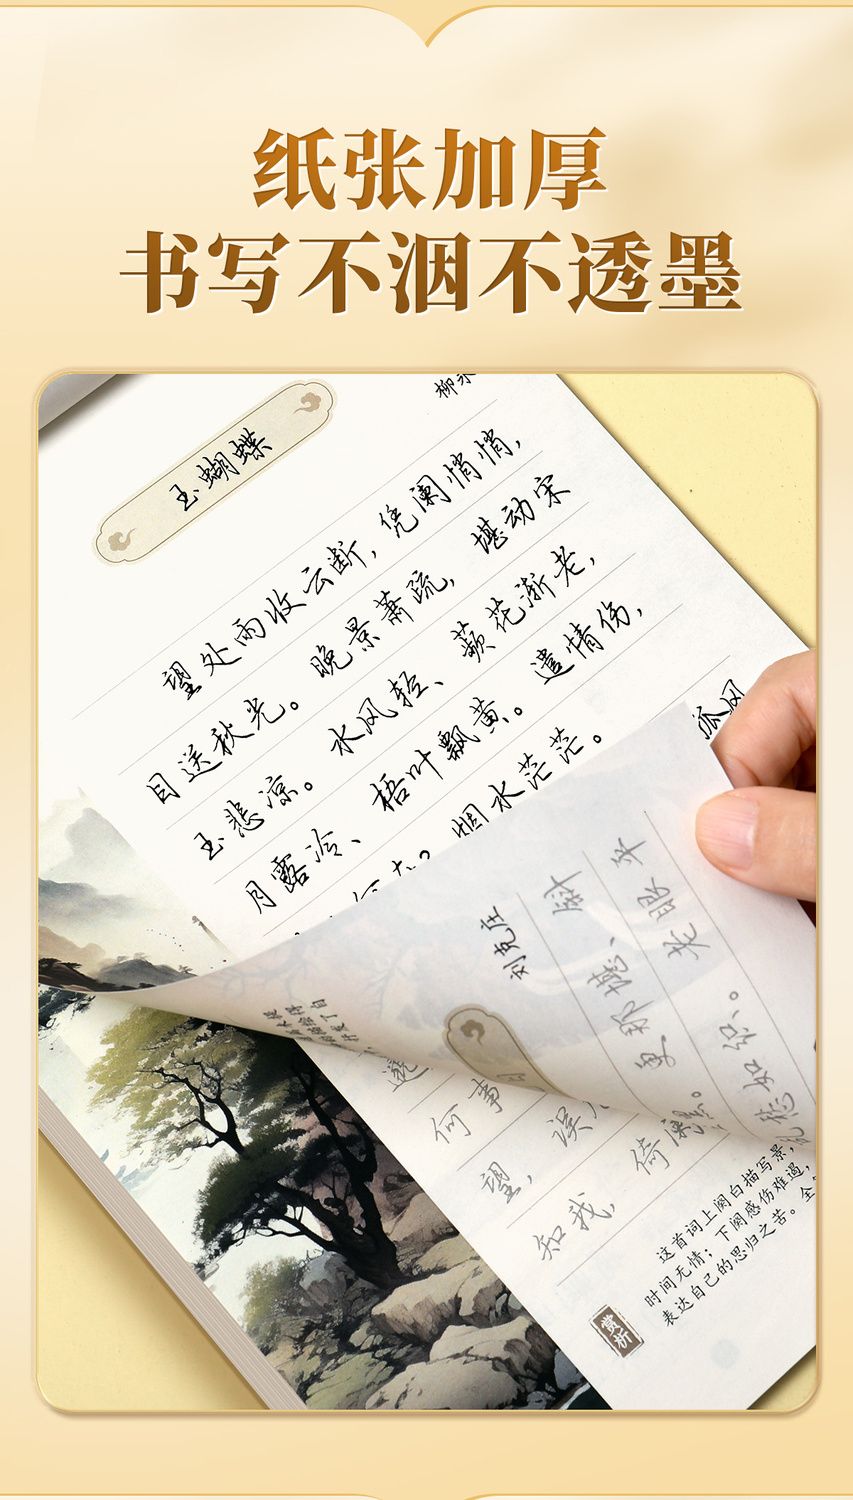 纸张加厚
书写不洇不透墨
柳永
玉蝴蝶
望处雨收云断，凭阑悄悄，
目送秋光。晚景萧疏，堪动宋
玉悲凉。水风轻、蘋花渐老，
月露冷、梧叶飘黄。遣情伤，
烟水茫茫。
孤风
刘克庄
老眼平
更那
何事
望，误
知我，倚阑
这首词上阕白描写景，
时间无情；下阕感伤难遏，
表达自己的思归之苦。全
赏析